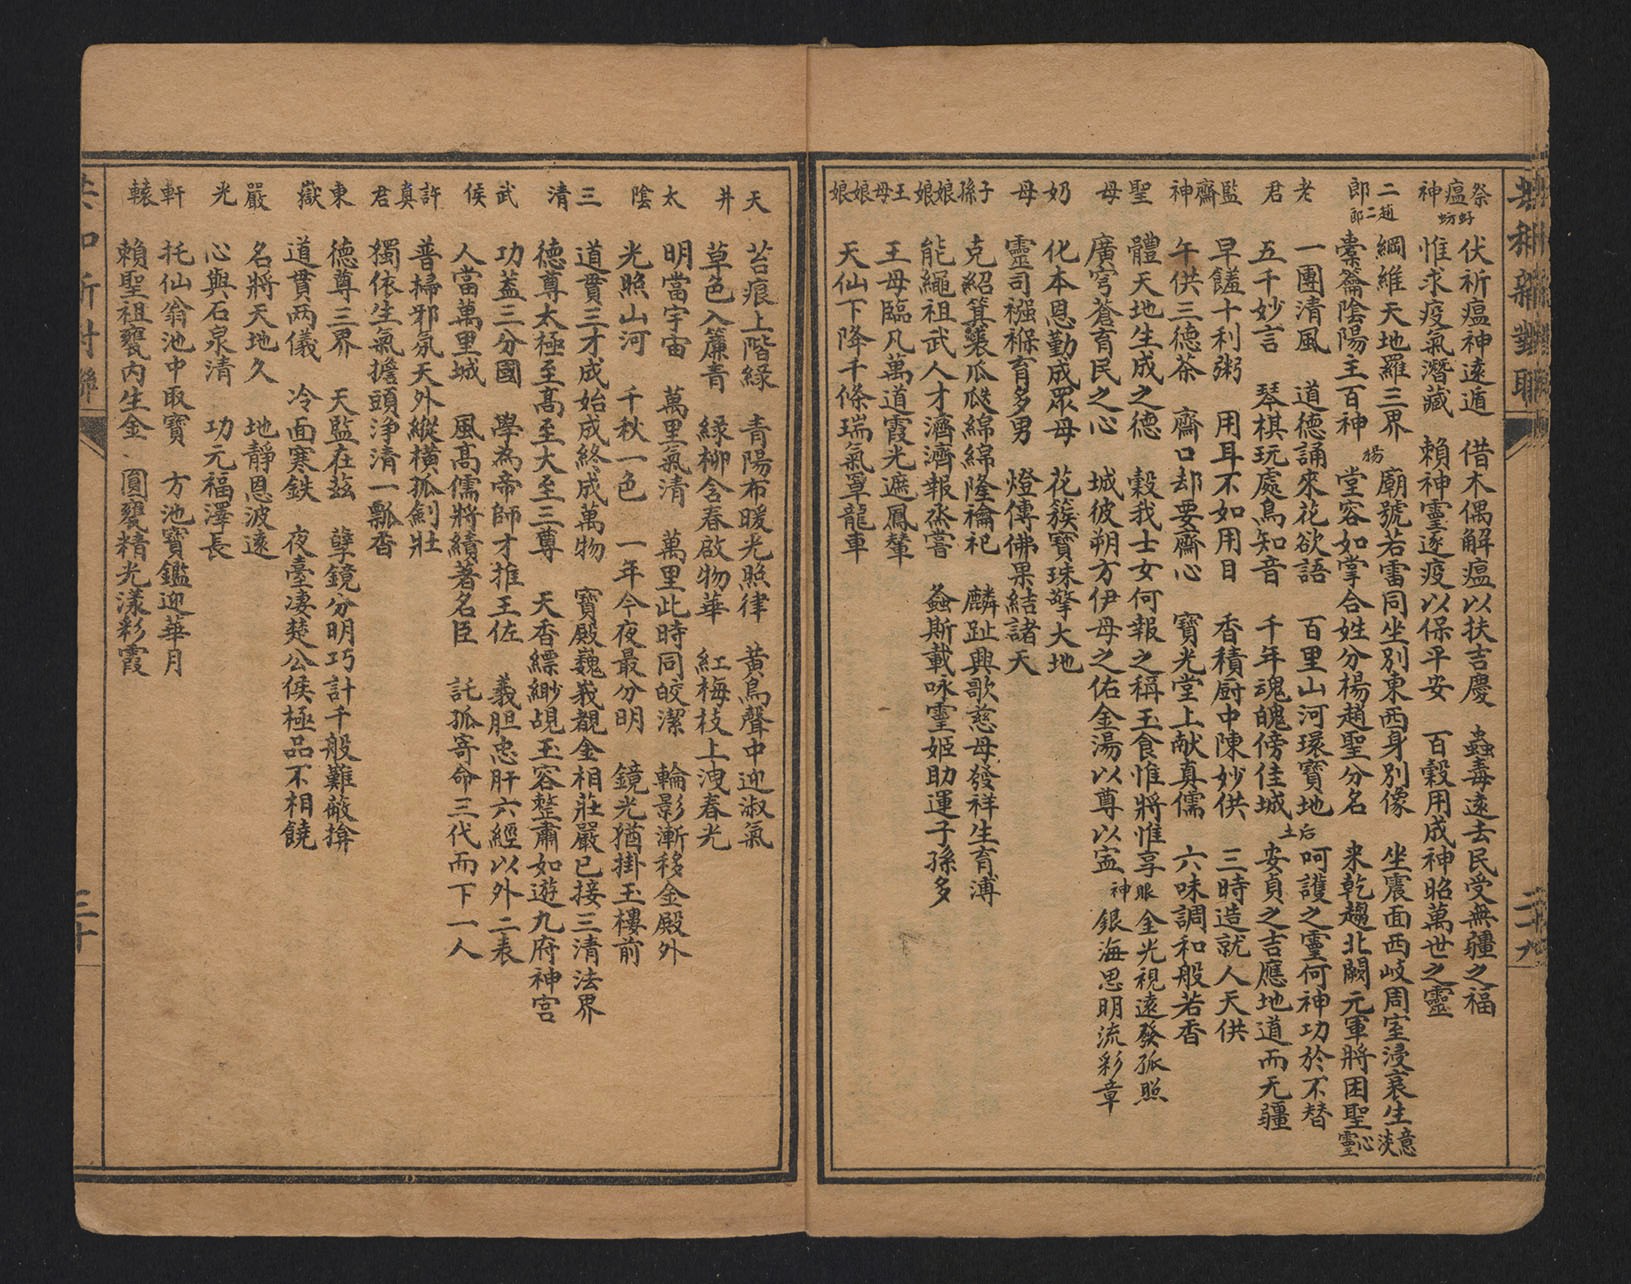 祭瘟神 伏祈瘟神遠遁 借木偶解瘟以扶吉慶 蟲毒遠去民受無疆之福
惟求疫氣潛藏 賴神靈逐疫以保平安 百穀用成神昭萬世之靈
二郎 趙二郎 綱維天地羅三界 廟號若雷同坐別東西身別像 坐震面西岐周室浸衰生意淡
橐籥陰陽主百神 楊 堂容如掌合姓分楊趙聖分名 来乾趨北闕元軍將困聖心靈
老君 一團清風 道德誦來花欲語 百里山河環寶地 后土 呵護之靈何神功於不替
五千妙言 琴棋玩處鳥知音 千年魂魄傍佳城 安貞之吉應地道而无疆
監齋神 早饈十利粥 用耳不如用目 香積厨中陳妙供 三時造就人天供
午供三德茶 齋口却要齋心 寶光堂上献真儒 六味調和般若香
聖母 體天地生成之德 穀我士女何報之稱玉食惟將惟享 眼神 全光視遠發孤照
廣穹蒼育民之心 城彼朔方伊母之佑金湯以尊以宝 銀海思明流彩章
奶母 化本恩勤成眾母 花簇寶珠擎大地
靈司襁褓育多男 燈傳佛果結諸天
子孫娘娘 克紹箕裘瓜瓞綿綿隆禴祀 麟趾興歌慈母發祥生育溥
能繩祖武人才濟濟報烝嘗 螽斯載咏靈姬助運子孫多
王母娘娘 王母臨凡萬道霞光遮鳳輦
天仙下降千條瑞氣罩龍車
二十九
天井 苔痕上階緑 青陽布暖光照律 黃鳥聲中迎淑氣
草色入簾青 緑柳含春啟物華 紅梅枝上洩春光
太陰 明當宇宙 萬里氣清 萬里此時同皎潔 輪影漸移金殿外
光照山河 千秋一色 一年今夜最分明 鏡光猶掛玉樓前
三清 道貫三才成始成終成萬物 寶殿巍峩覩金相莊嚴已接三清法界
德尊太極至髙至大至三尊 天香縹緲覘玉容整肅如遊九府神宮
武侯 功蓋三分國 學為帝師才推王佐 義胆忠肝六經以外二表
人當萬里城 風髙儒將績著名臣 託孤寄命三代而下一人
許真君 普掃邪氛天外縱橫孤劍壯
獨依生氣擔頭浄清一瓢香
東嶽 德尊三界 天監在茲 孽鏡分明巧計千般難敵拚
道貫两儀 冷面寒鉄 夜臺凄楚公侯極品不相饒
嚴光 名將天地久 地靜恩波遠
心與石泉清 功元福澤長
軒轅 托仙翁池中取寶 方池寶鑑迎華月
賴聖祖甕内生金 圓甕精光漾彩霞
三十